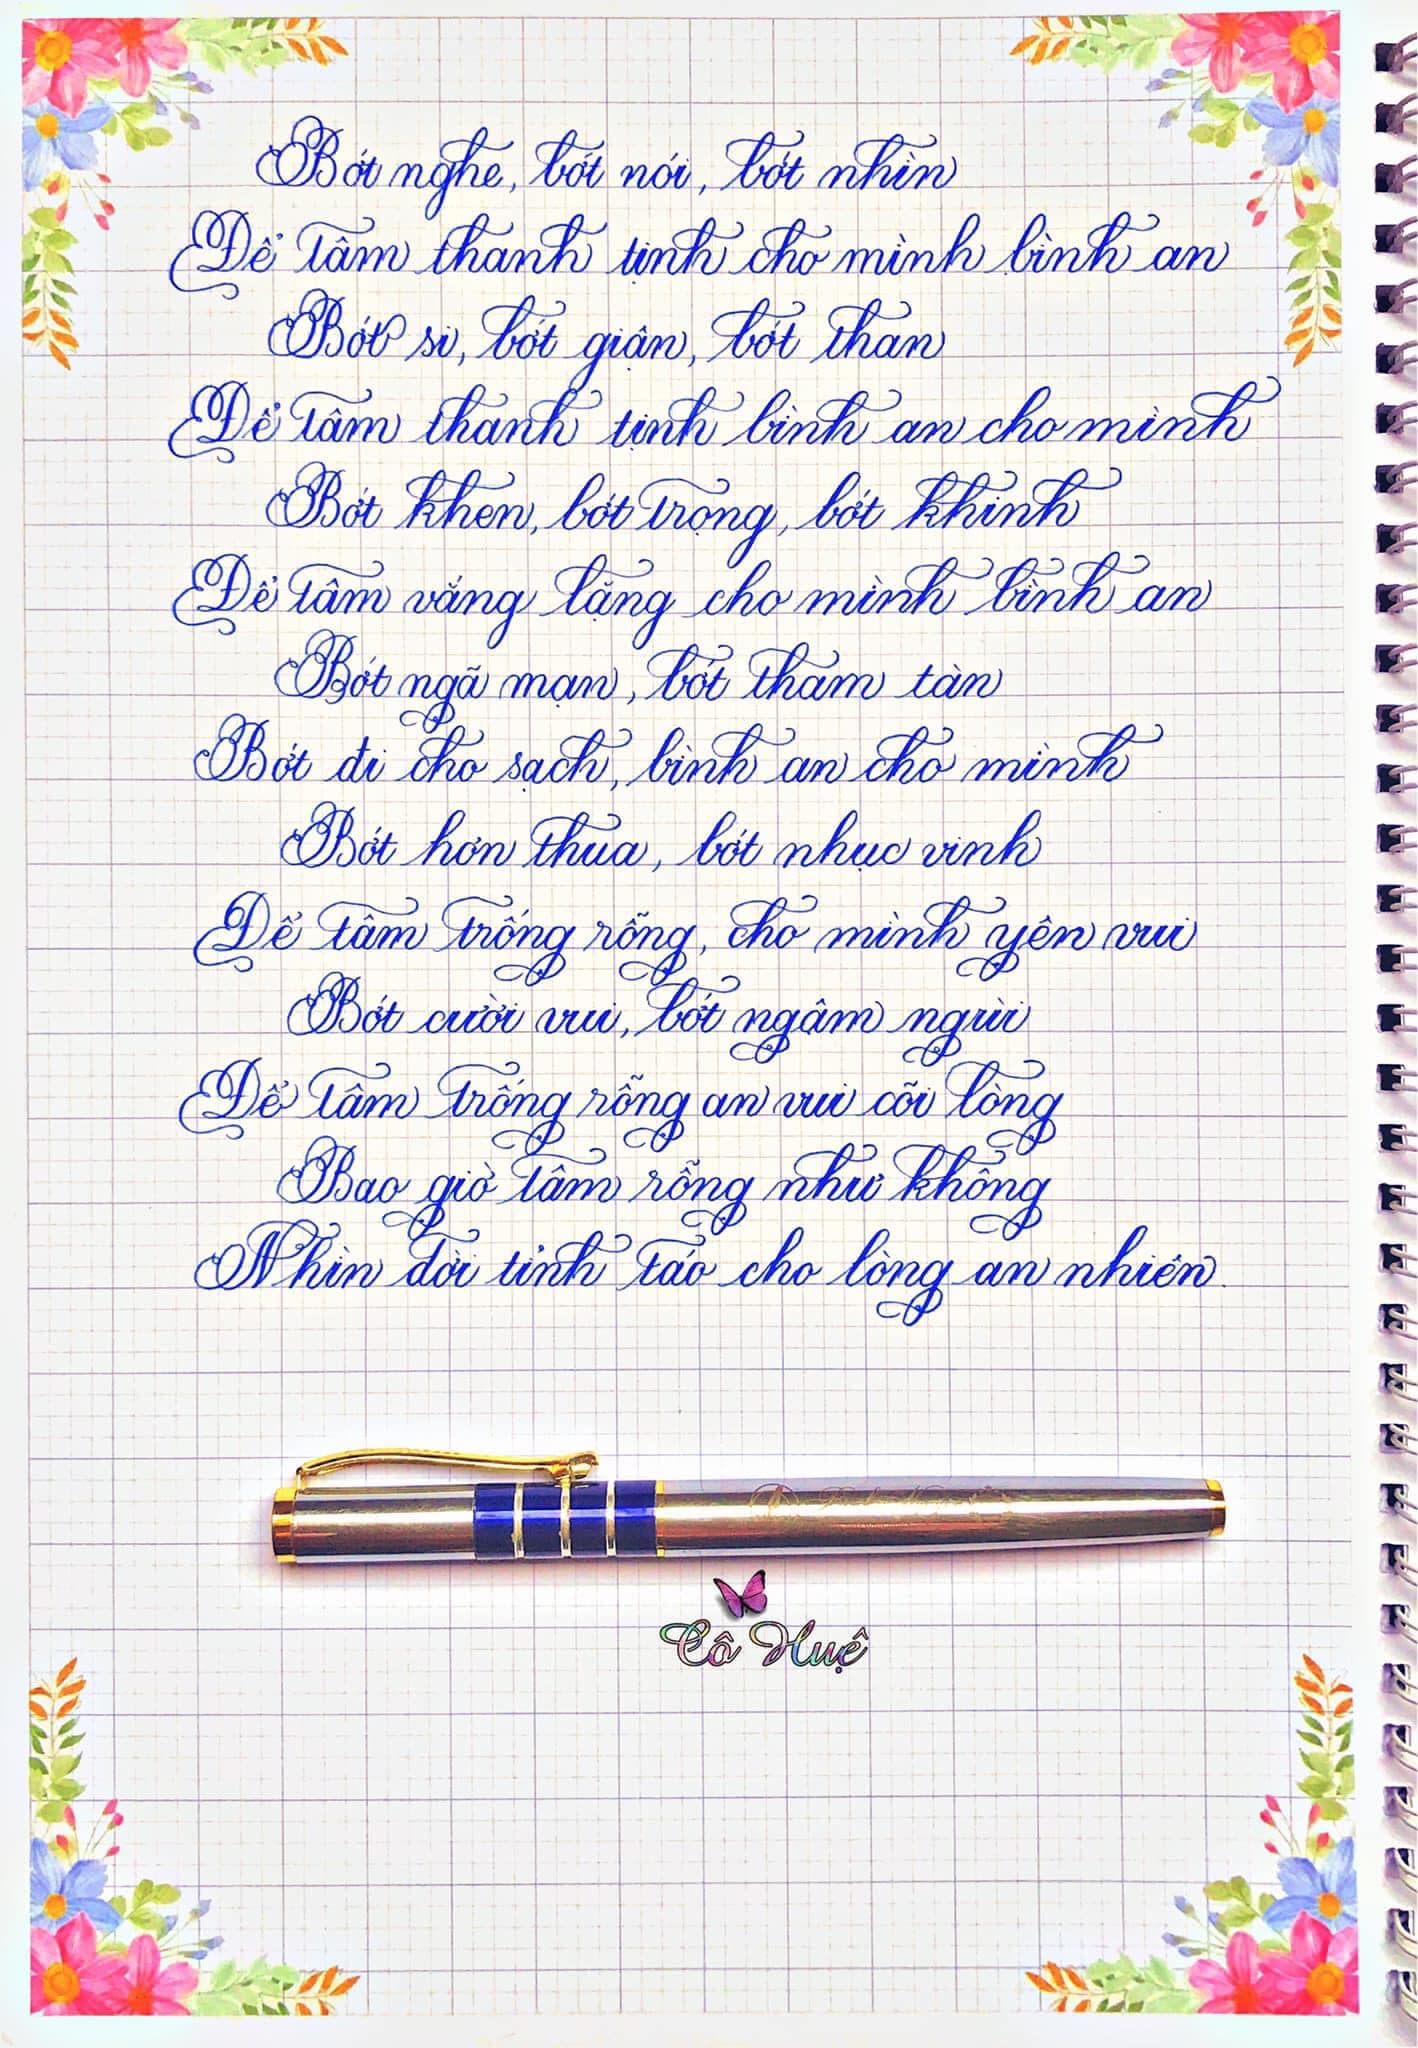 Bớt nghe, bớt nói, bớt nhìn
Để tâm thanh tịnh cho mình bình an
Bớt si, bớt giận, bớt than
Để tâm thanh tịnh bình an cho mình
Bớt khen, bớt trọng, bớt khinh
Để tâm vắng lặng cho mình bình an
Bớt ngã mạn, bớt tham tàn
Bớt đi cho sạch, bình an cho mình
Bớt hơn thua, bớt nhục vinh
Để tâm trống rỗng, cho mình yên vui
Bớt cười vui, bớt ngậm ngùi
Để tâm trống rỗng an vui cõi lòng
Bao giờ tâm rỗng như không
Nhìn đời tỉnh táo cho lòng an nhiên.
Cô Huệ